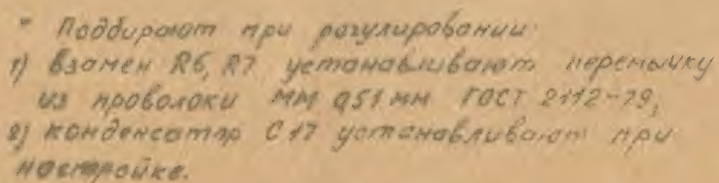 * Подбирают при регулировании:
1) взамен R6, R7 устанавливают перемычку
из проволоки ММ 0,51 мм ГОСТ 2112-79;
2) конденсатор С17 устанавливают при
настройке.